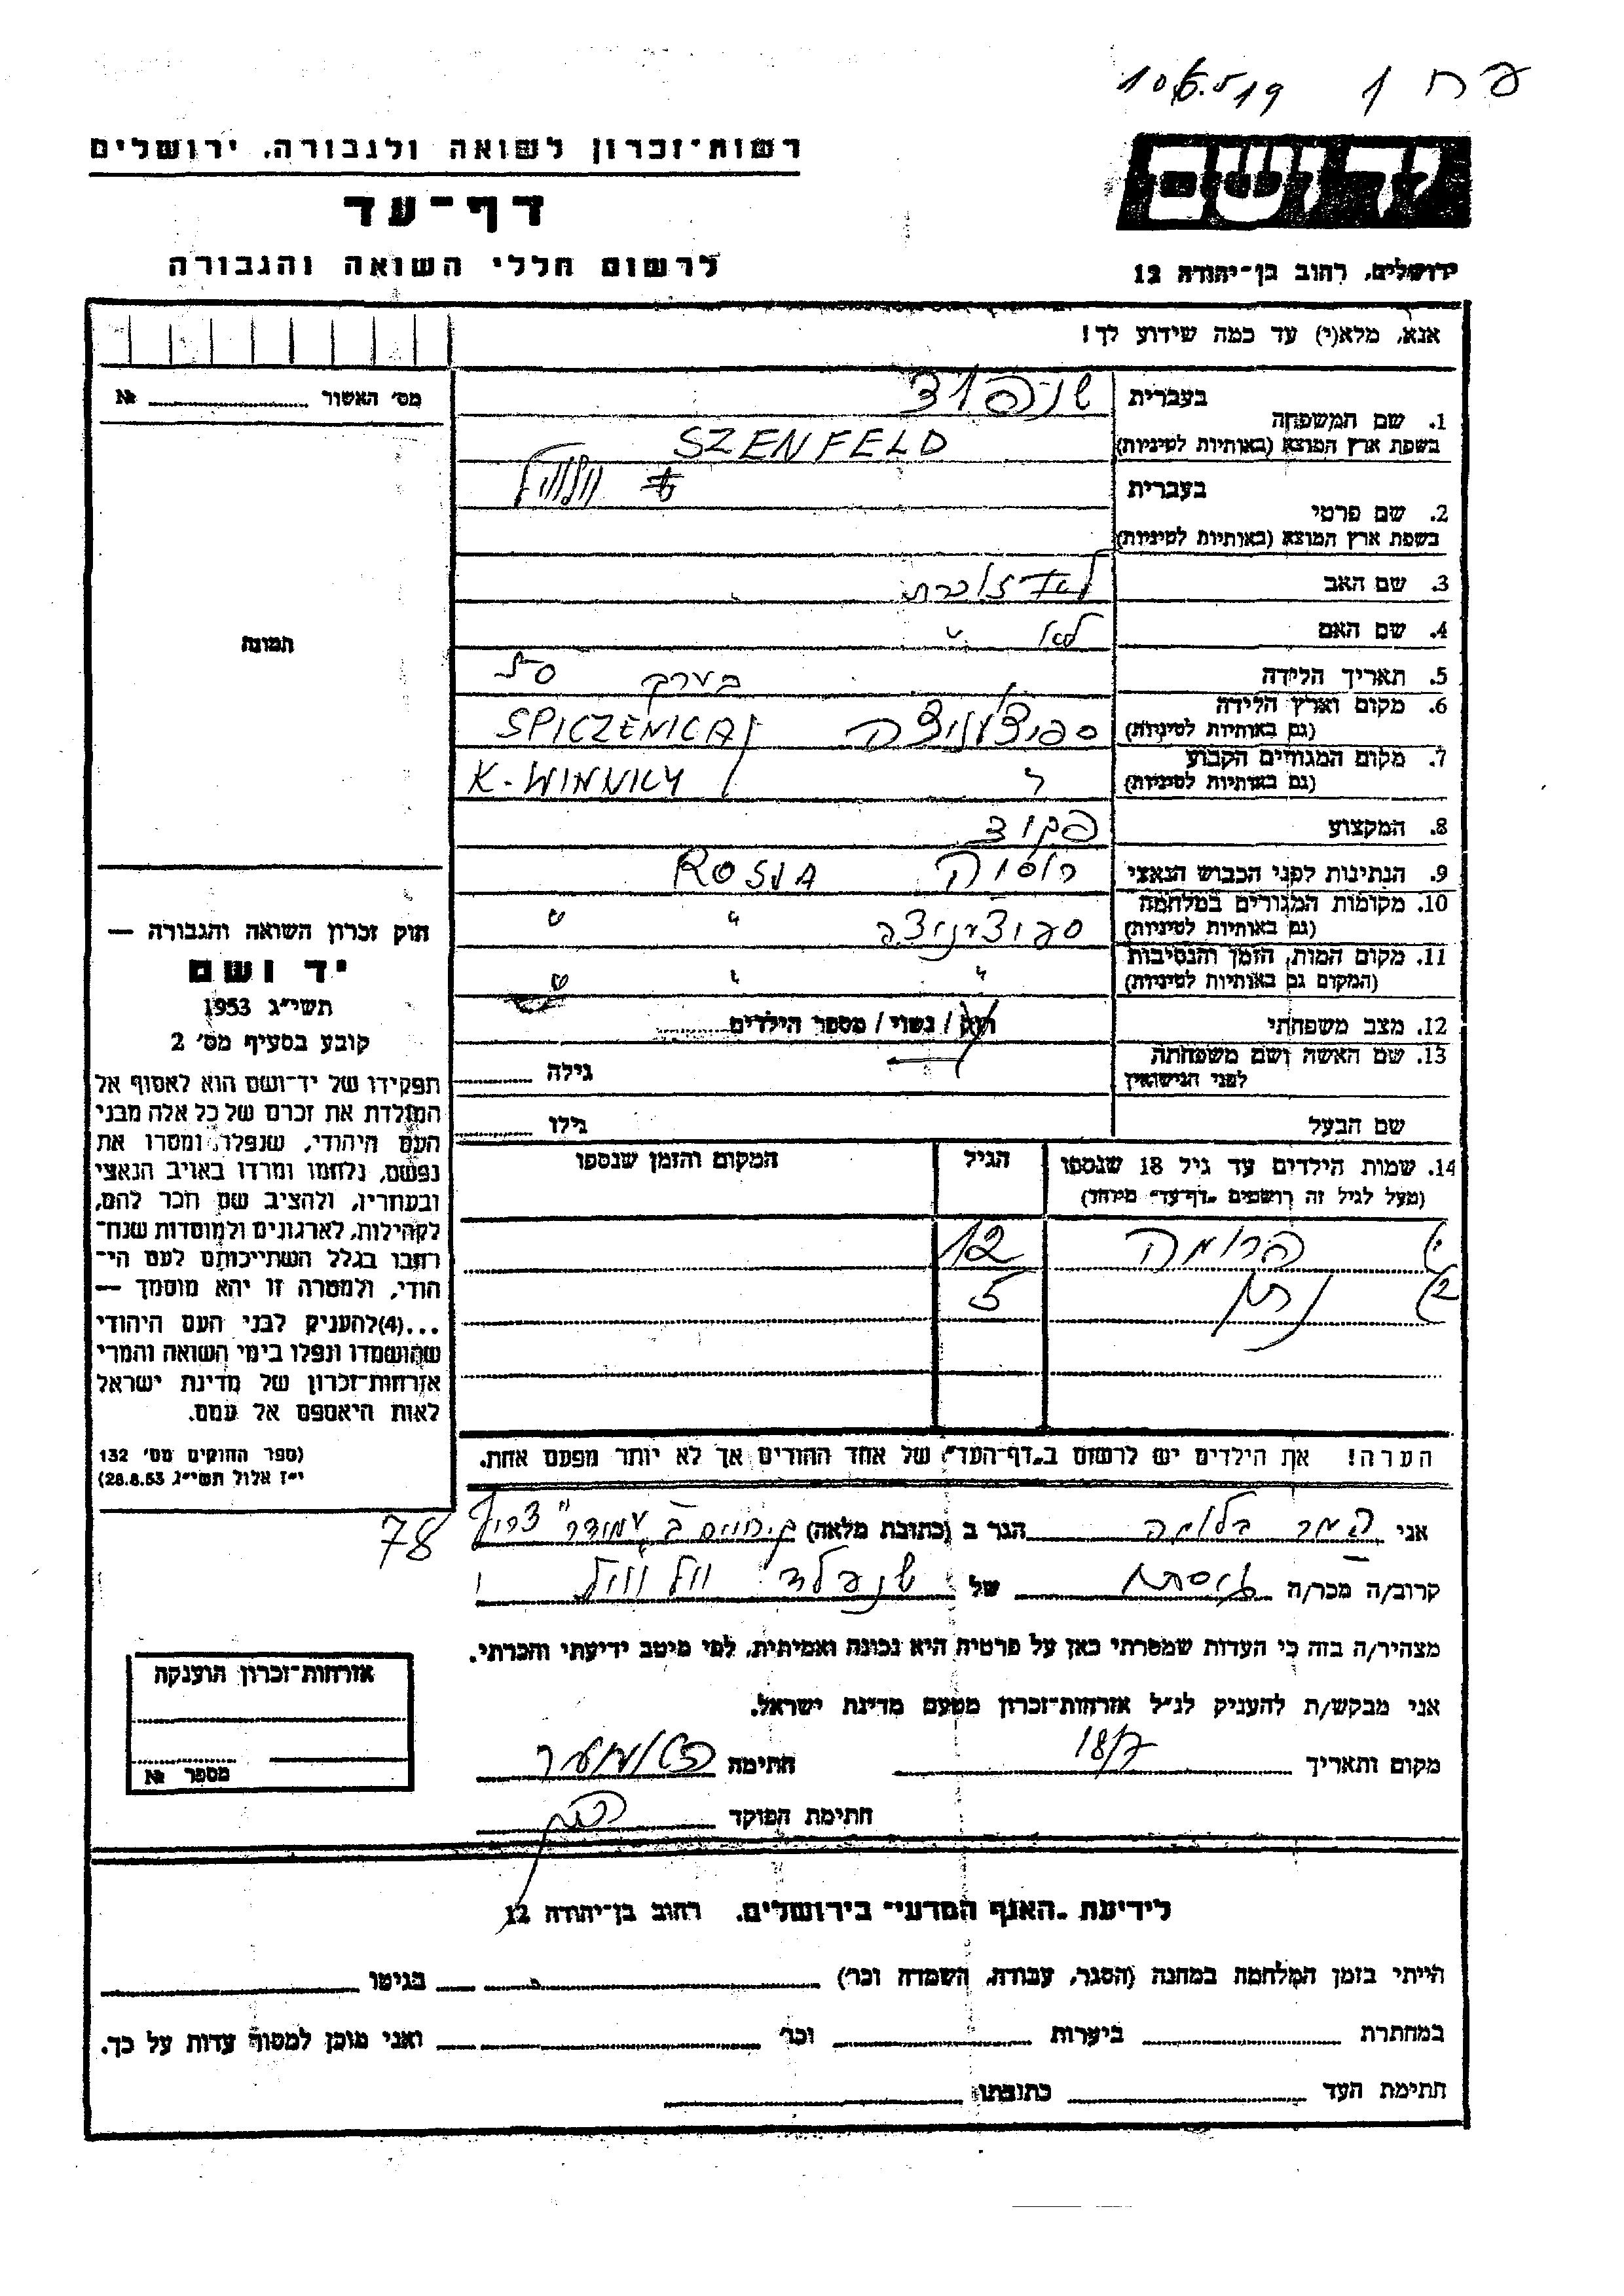 פ ח 1
רשות־זכרון לשואה ולגבורה. ירושלים
דף־עד
לרשום חללי השואה והגבורה
יד ושם
ירושלים, רחוב בן־יהודה 12
אנא, מלא(י) עד כמה שידוע לך!
מס׳ האשור № 
תמונה
1. שם המשפחה בעברית
בשפת ארץ המוצא (באותיות לטיניות) SZENFELD
2. שם פרטי בעברית
בשפת ארץ המוצא (באותיות לטיניות)
3. שם האב
4. שם האם לאה
5. תאריך הלידה בערך
6. מקום וארץ הלידה (גם באותיות לטיניות) SPICZENICA
7. מקום המגורים הקבוע (גם באותיות לטיניות) K-WINNICY
8. המקצוע פקיד
9. הנתינות לפני הכבוש הנאצי רוסיה ROSJA
10. מקומות המגורים במלחמה (גם באותיות לטיניות) " "
11. מקום המות, הזמן והנסיבות (המקום גם באותיות לטיניות) " "
12. מצב משפחתי רווק / נשוי / מספר הילדים
13. שם האשה ושם משפחתה לפני הנישואין גילה
שם הבעל גילו
14. שמות הילדים עד גיל 18 שנספו הגיל המקום והזמן שנספו
(מעל לגיל זה רושמים "דף־עד" מיוחד)
1) פרומה 12
2) נתן 5
הערה! את הילדים יש לרשום ב"דף־העד" של אחד ההורים אך לא יותר מפעם אחת.
חוק זכרון השואה והגבורה —
יד ושם
תשי"ג 1953
קובע בסעיף מס׳ 2
תפקידו של יד־ושם הוא לאסוף אל
המולדת את זכרם של כל אלה מבני
העם היהודי, שנפלו, ומסרו את
נפשם, נלחמו ומרדו באויב הנאצי
ובעוזריו, ולהציב שם וזכר להם,
לקהילות, לארגונים ולמוסדות שנח־
רבו בגלל השתייכותם לעם הי־
הודי, ולמטרה זו יהא מוסמך —
...(4)להעניק לבני העם היהודי
שהושמדו ונפלו בימי השואה והמרי
אזרחות־זכרון של מדינת ישראל
לאות היאספם אל עמם.
(ספר החוקים מס׳ 132
י"ז אלול תשי"ג 28.8.53)
אני בלומה הגר ב (כתובת מלאה) צריף 78
קרוב/ה מכר/ה גיסתו של שנפלד
מצהיר/ה בזה כי העדות שמסרתי כאן על פרטיה היא נכונה ואמיתית, לפי מיטב ידיעתי והכרתי.
אני מבקש/ת להעניק לנ"ל אזרחות־זכרון מטעם מדינת ישראל.
מקום ותאריך 18/7 חתימה
חתימת הפוקד
אזרחות־זכרון הוענקה
מספר №
לידיעת "האגף המדעי" בירושלים. רחוב בן־יהודה 12
הייתי בזמן המלחמה במחנה (הסגר, עבודה, השמדה וכר׳) בגיטו
במחתרת ביערות וכר׳ ואני מוכן למסור עדות על כך.
חתימת העד כתובתו